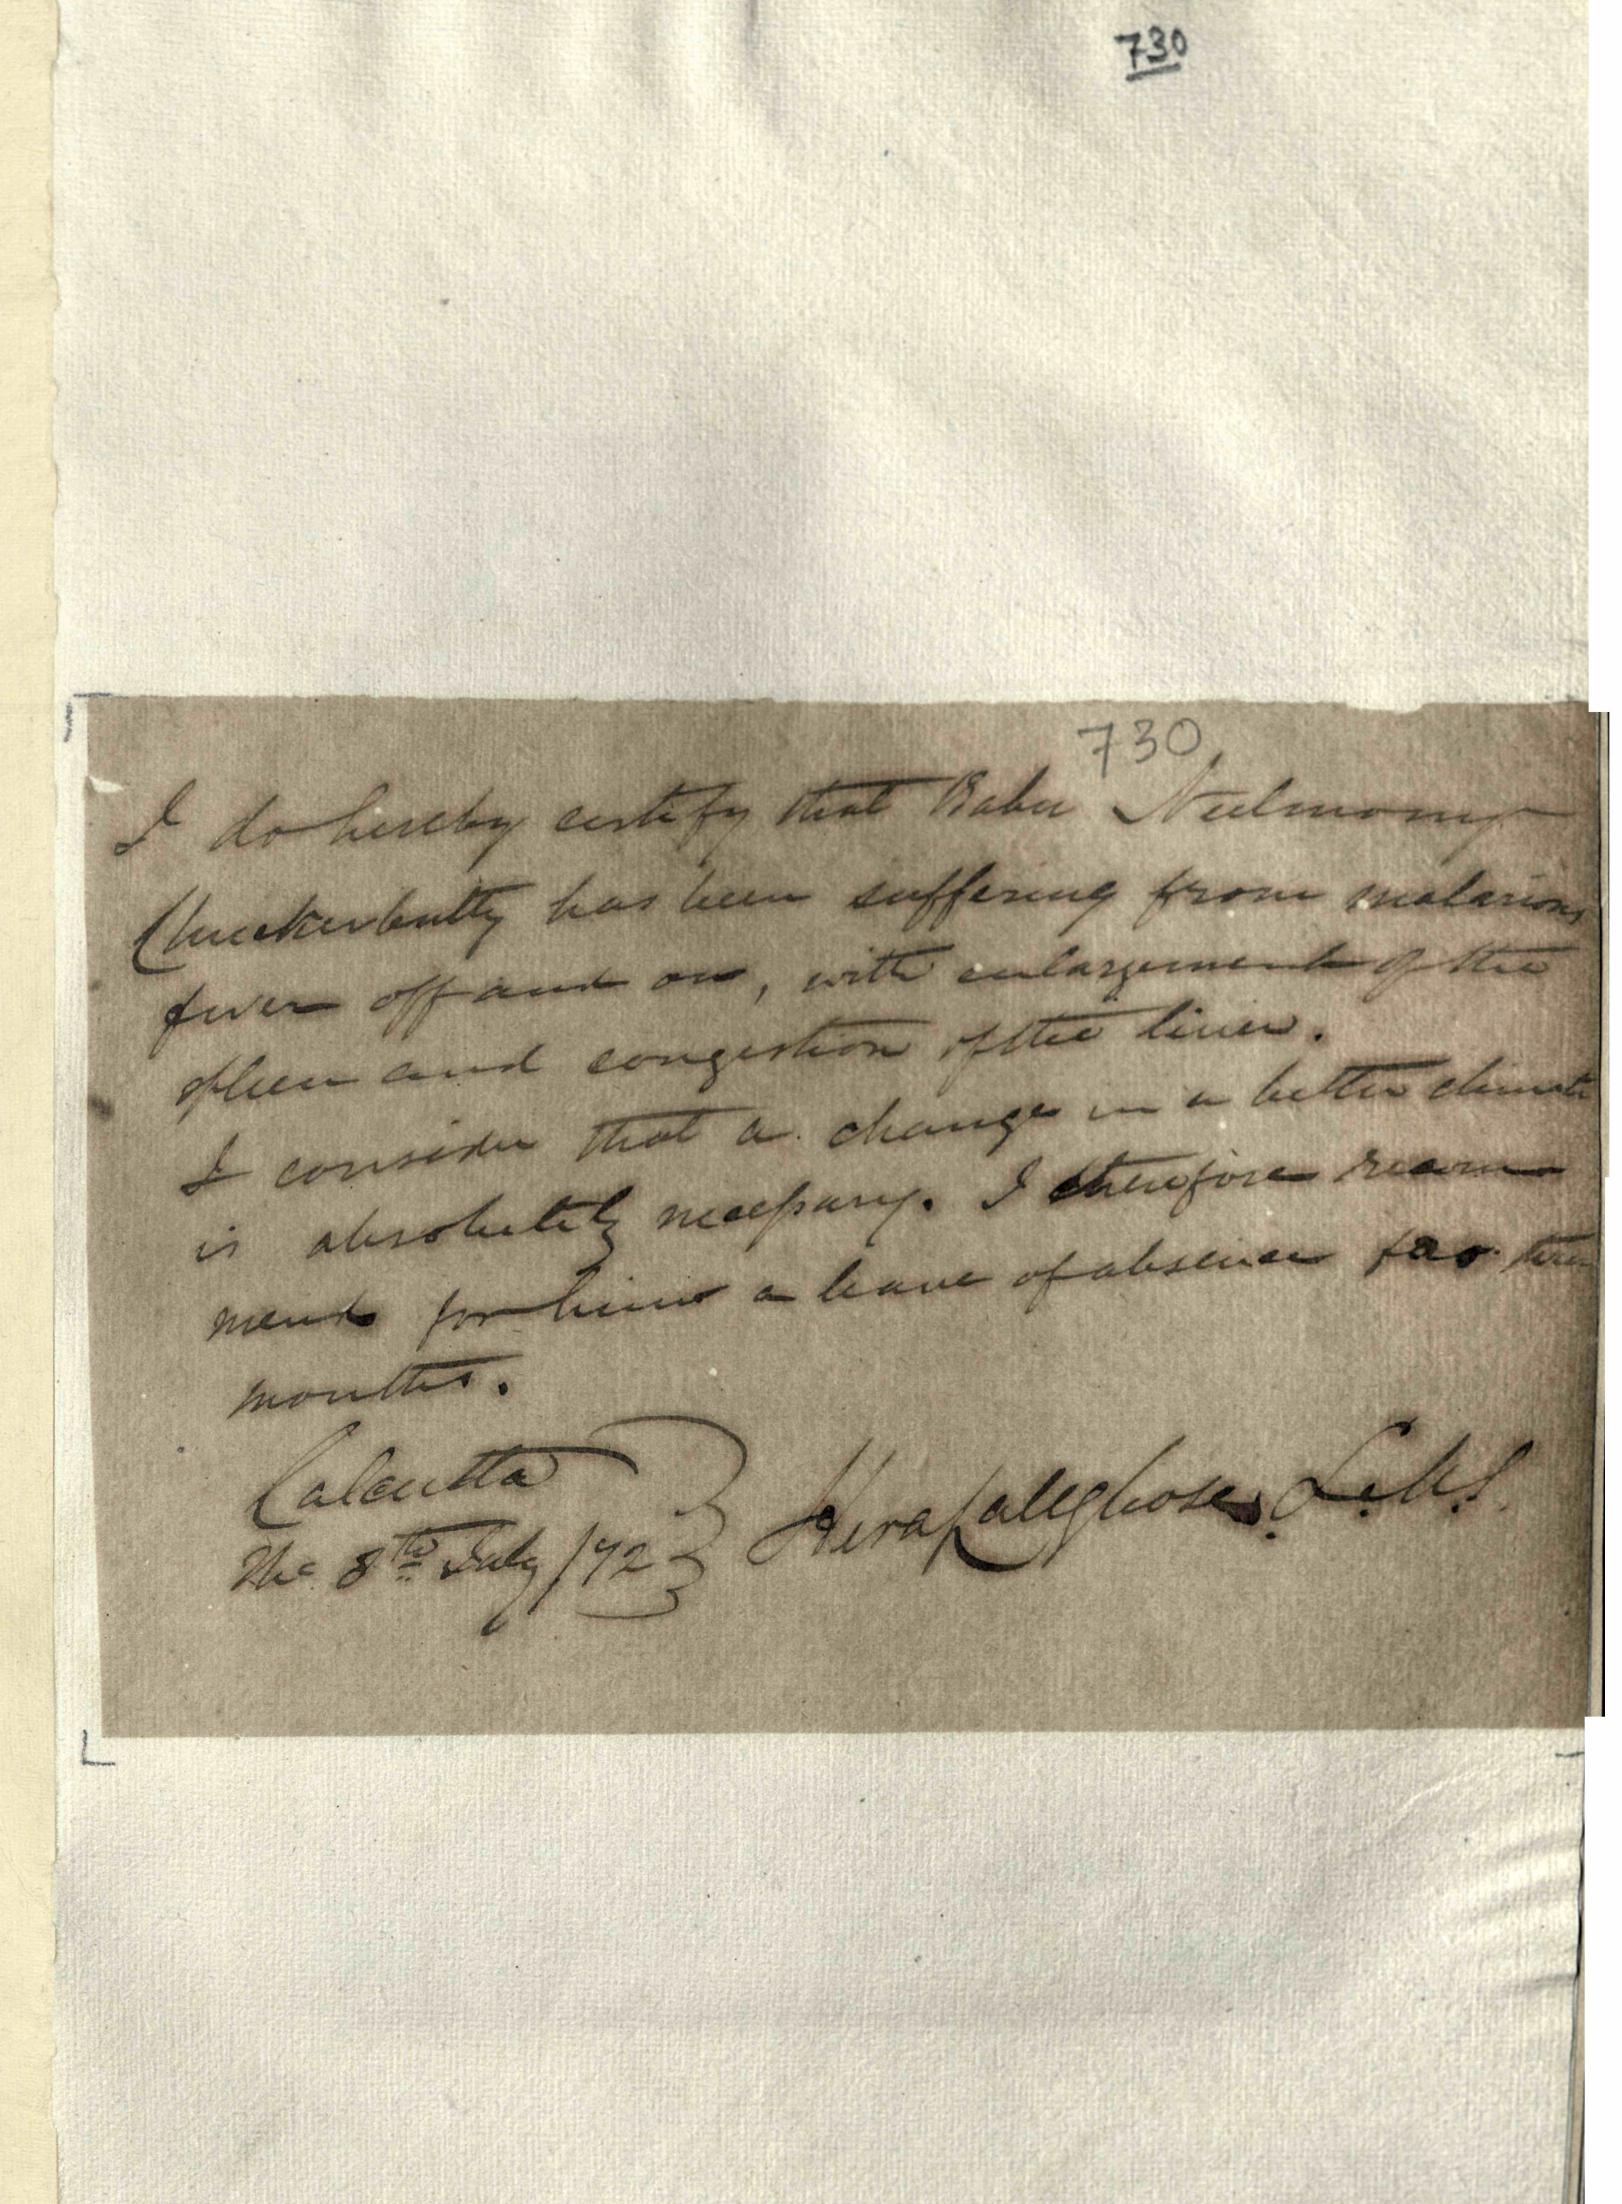 730
730
I do hereby certify that Babu Neelmoney
Chuckerbutty has been suffering from malarious
fever off and on, with enlargement of the
spleen and congestion of the liver.
I consider that a change in a better climate
is absolutely necessary. I therefore recom
mend for him a leave of absence for three
months.
Calcutta
The 8th July /72
Hera Lall Ghose. L.M.S.